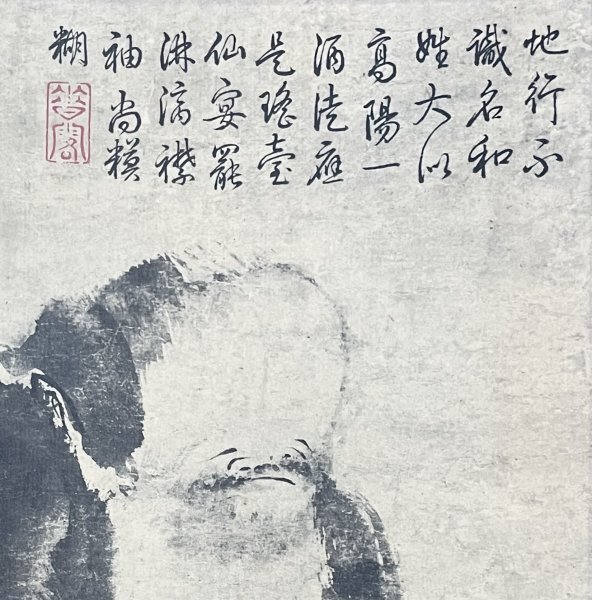 地行不
識名和
姓大似
高陽一
酒徒應
是瑤臺
仙宴罷
淋漓襟
袖尚糢
糊